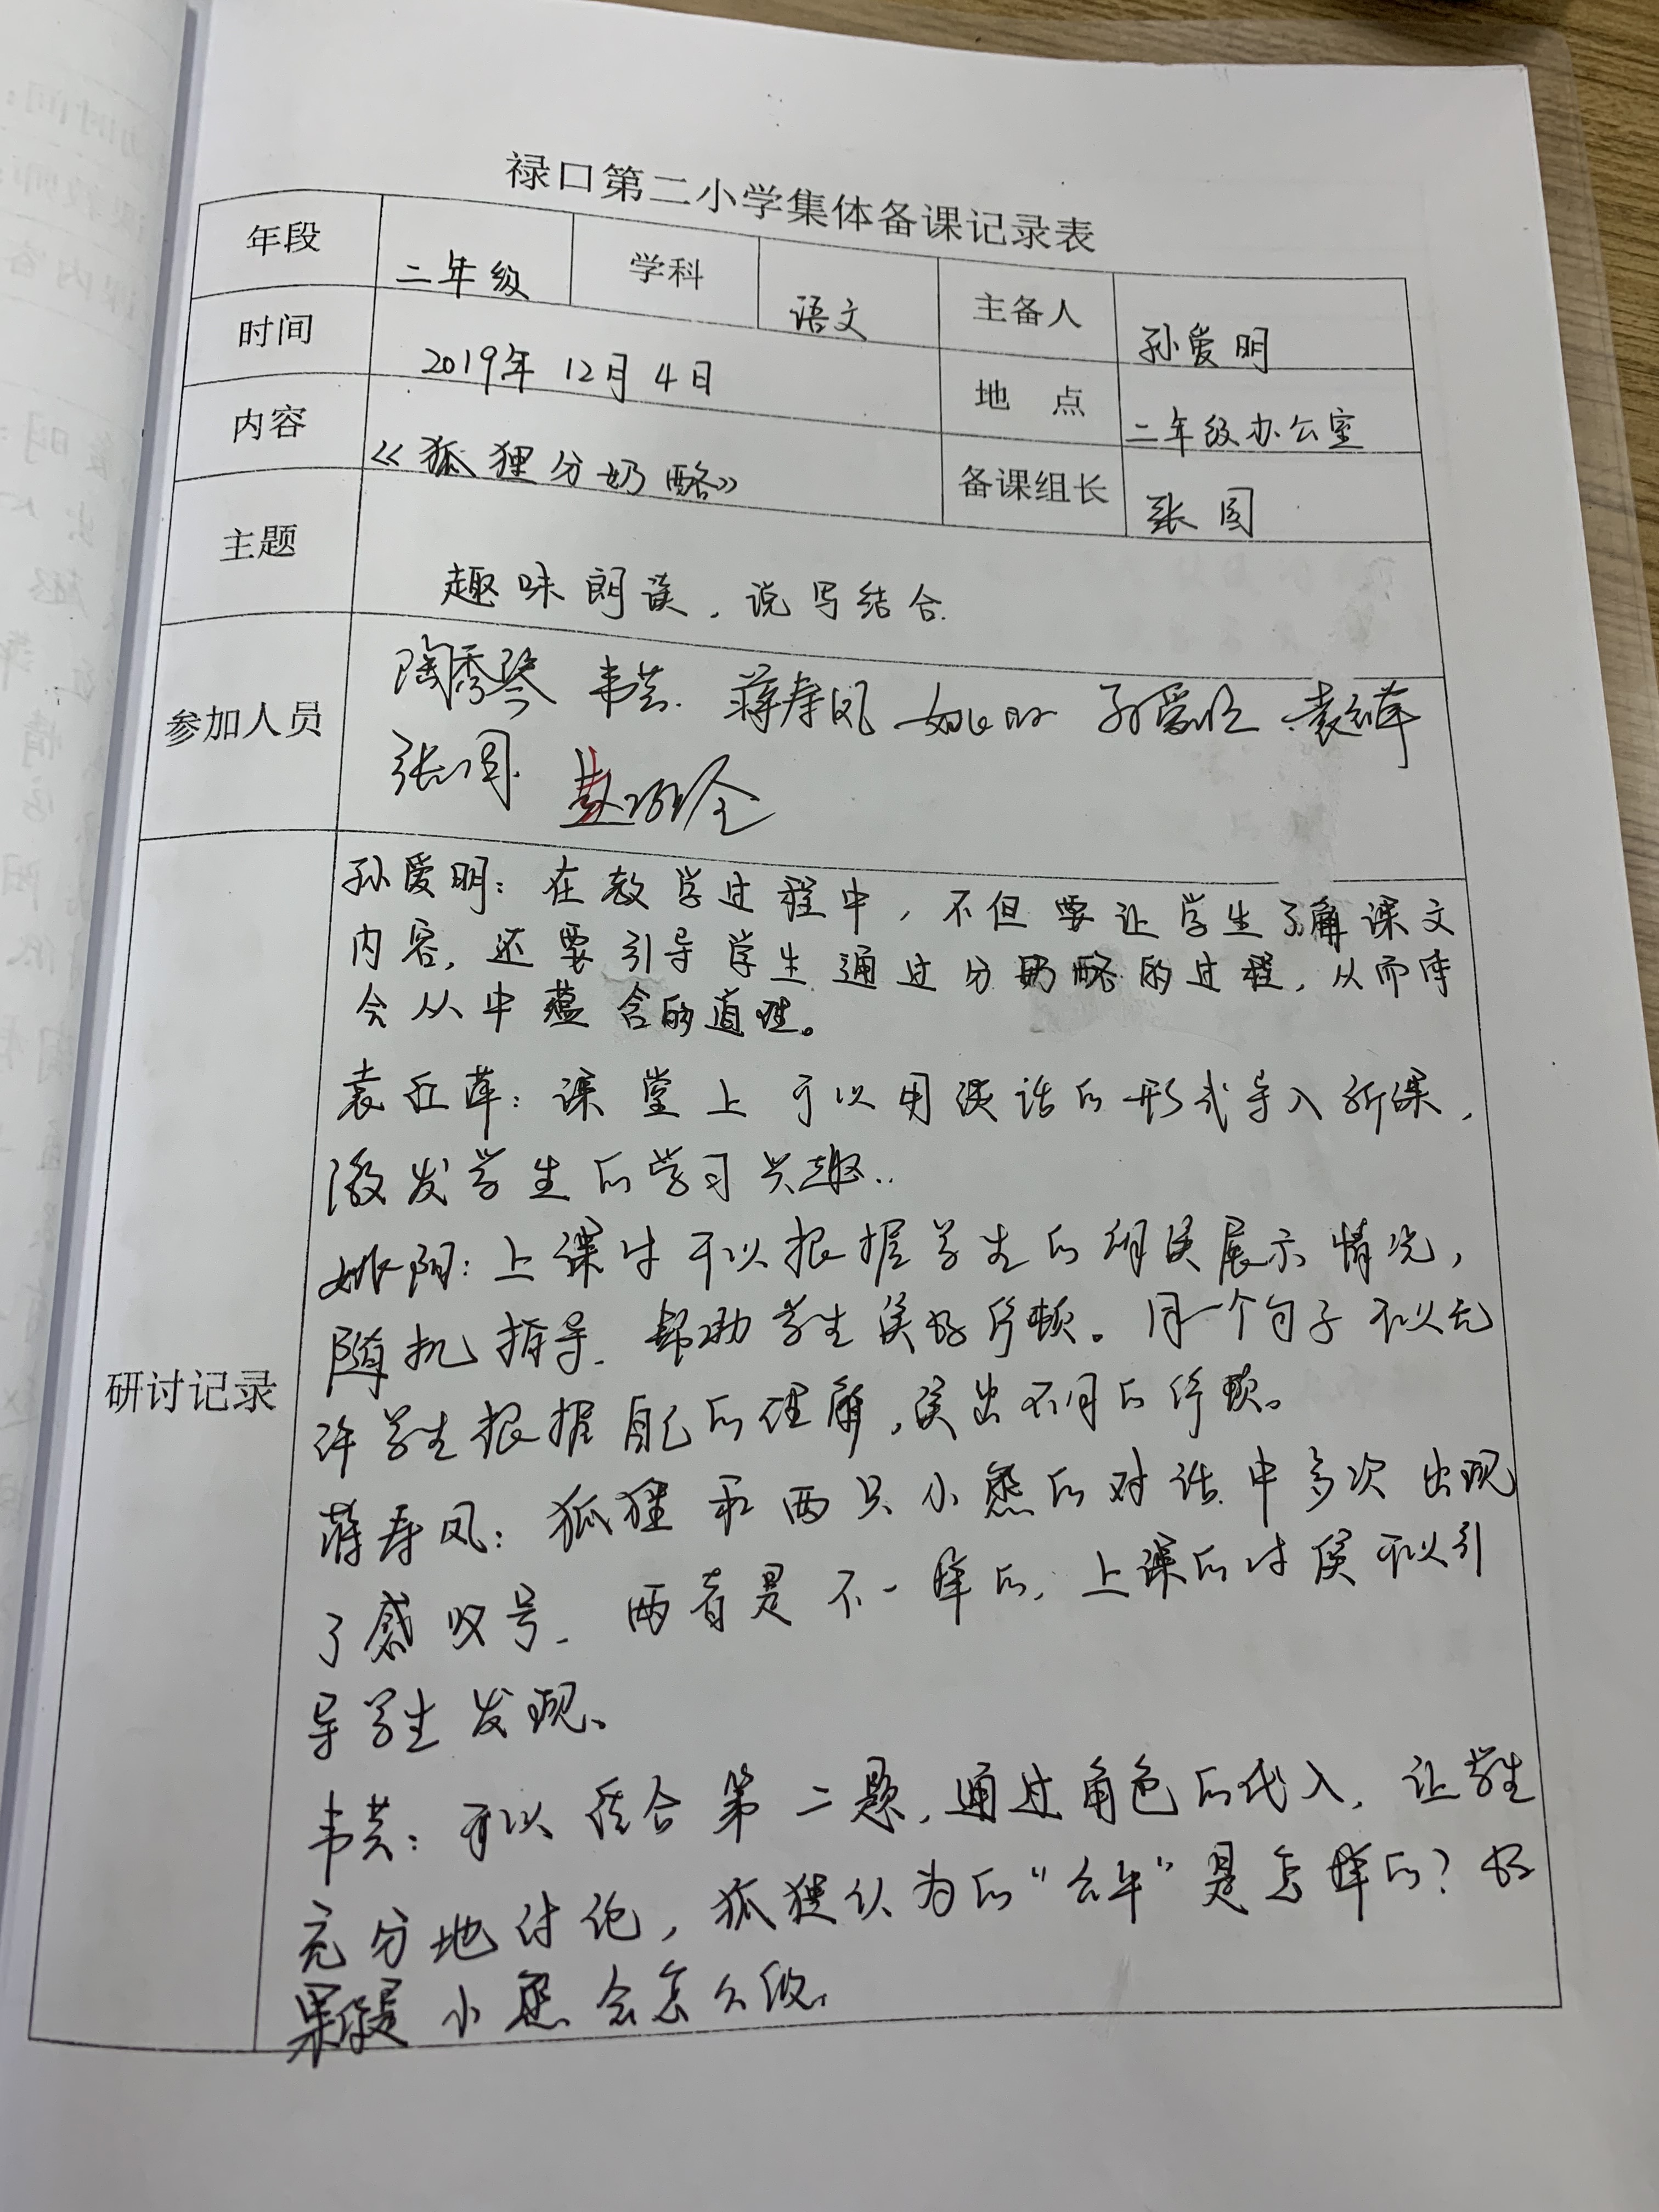 禄口第二小学集体备课记录表
年段 二年级 学科 语文 主备人 孙爱明
时间 2019年12月4日 地 点 二年级办公室
内容 《狐狸分奶酪》 备课组长 张闰
主题 趣味朗读，说写结合.
参加人员 陶秀琴 韦芸. 蒋寿凤 姚阳 孙爱明 袁红萍
张闰.
研讨记录
孙爱明：在教学过程中，不但要让学生了解课文
内容，还要引导学生通过分奶酪的过程，从而体
会从中蕴含的道理。
袁红萍：课堂上可以用谈话的形式导入新课，
激发学生的学习兴趣..
姚阳：上课时可以根据学生的朗读展示情况，
随机指导.帮助学生读好停顿。同一个句子可以允
许学生根据自己的理解,读出不同的停顿。
蒋寿凤：狐狸和两只小熊的对话中多次出现
了感叹号.两者是不一样的,上课的时候可以引
导学生发现、
韦芸：可以结合第二题,通过角色的代入,让学生
充分地讨论，狐狸认为的“公平”是怎样的？如
果你是小熊会怎么做.